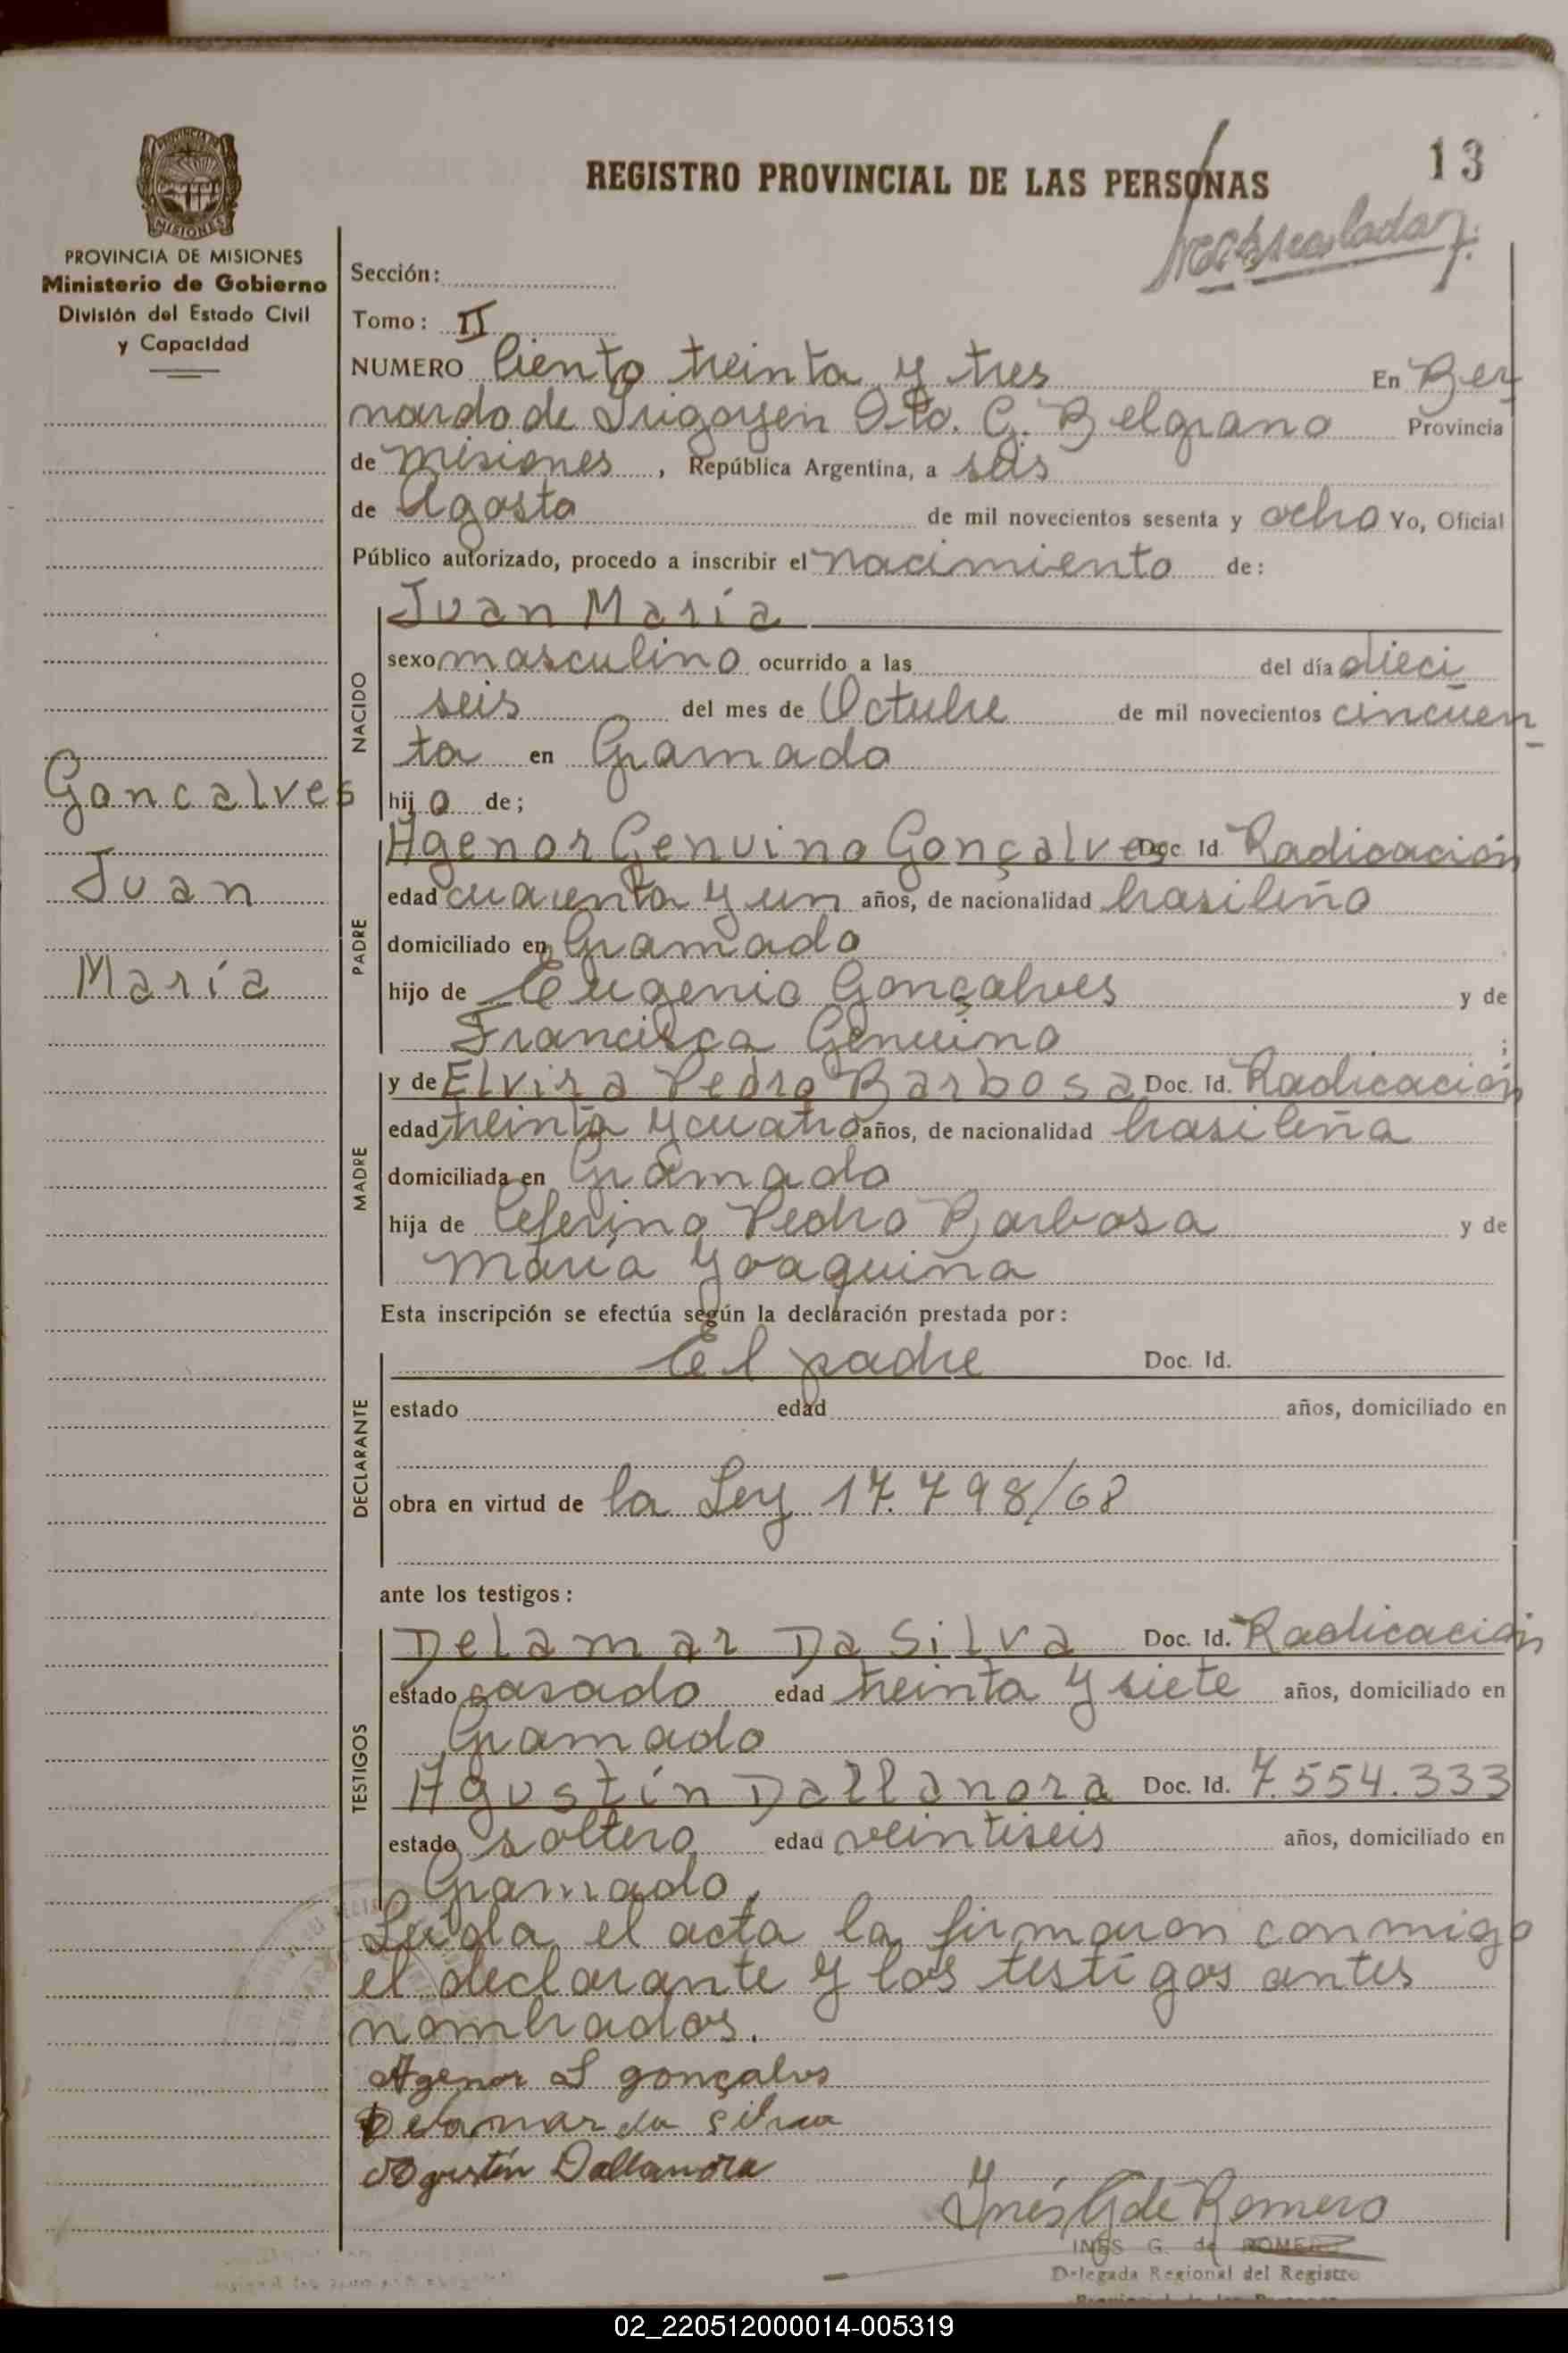 13
REGISTRO PROVINCIAL DE LAS PERSONAS
MISIONES
PROVINCIA DE MISIONES
Ministerio de Gobierno
División del Estado Civil
y Capacidad
Sección:
Tomo: II
NUMERO Ciento treinta y tres En Ber
nardo de Irigoyen Dto. G. Belgrano Provincia
de Misiones, República Argentina, a seis
de Agosto de mil novecientos sesenta y ocho Yo, Oficial
Público autorizado, procedo a inscribir el nacimiento de:
Juan María
NACIDO
sexo masculino ocurrido a las del día dieci
seis del mes de Octubre de mil novecientos cincuen
ta en Gramado
hijo de;
Goncalves
Juan
María
PADRE
Agenor Genuino Gonçalves Doc. Id. Radicación
edad cuarenta y un años, de nacionalidad brasileño
domiciliado en Gramado
hijo de Eugenio Gonçalves y de
Francisca Genuino ;
MADRE
y de Elvira Pedro Barbosa Doc. Id. Radicación
edad treinta y cuatro años, de nacionalidad brasileña
domiciliada en Gramado
hija de Ceferino Pedro Barbosa y de
María Yoaquina
Esta inscripción se efectúa según la declaración prestada por:
DECLARANTE
El padre Doc. Id.
estado edad años, domiciliado en
obra en virtud de la Ley 17.798/68
ante los testigos:
TESTIGOS
Delamar Da Silva Doc. Id. Radicación
estado casado edad treinta y siete años, domiciliado en
Gramado
Agustín Dallanora Doc. Id. 7.554.333
estado soltero edad veintiseis años, domiciliado en
Gramado.
Leída el acta la firmaron conmigo
el declarante y los testigos antes
nombrados.
Agenor S gonçalvs
Delamar da silva
Agustín Dallanora
Inés G de Romero
INES G. de ROMERO
Delegada Regional del Registro
02_220512000014-005319